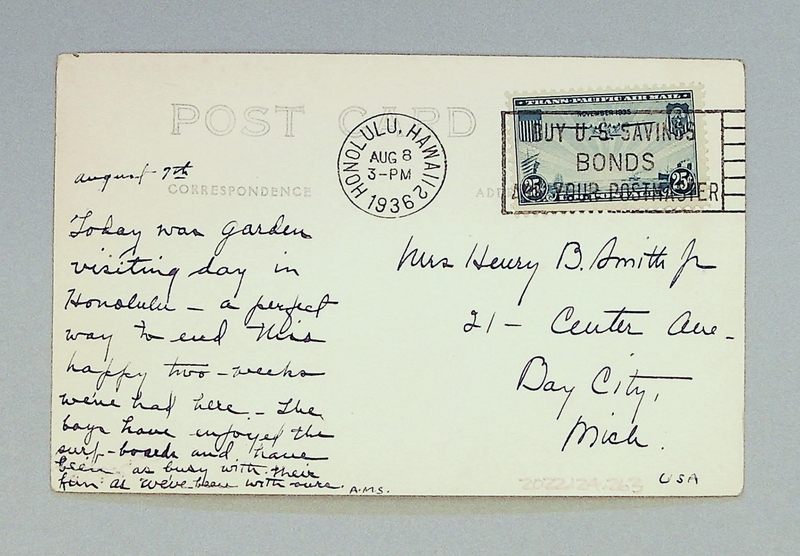 POST CARD
TRANS-PACIFIC AIR MAIL
NOVEMBER 1935
BUY U.S. SAVINGS
BONDS
ASK YOUR POSTMASTER
25¢ 25¢
HONOLULU, HAWAII 2
AUG 8
3-PM
1936
CORRESPONDENCE
ADD
August 7th
Today was garden
visiting day in
Honolulu – a perfect
way to end this
happy two-weeks
we've had here – The
boys have enjoyed the
surf-boards and have
been as busy with their
fun as we've been with ours.
A.M.S.
Mrs Henry B. Smith Jr
21 – Center Ave –
Bay City,
Mich.
2022124.263
USA